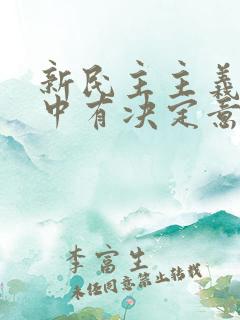 新民主主义
中有决定意
李富生
未经同意禁止转载